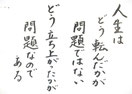 人生は
どう転んだかが
問題ではない
どう立ち上がたかが
問題なので
ある